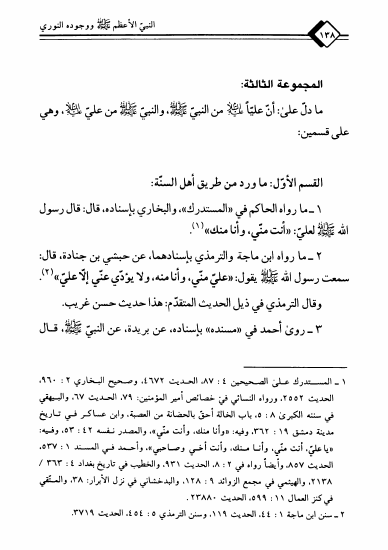 ١٣٨
النبيّ الأعظم ﷺ ووجوده النوري
المجموعة الثالثة:
ما دلّ على: أنّ عليّاً عليه السلام من النبيّ ﷺ، والنبيّ ﷺ من عليّ عليه السلام، وهي
على قسمين:
القسم الأوّل: ما ورد من طريق أهل السنّة:
١ ـ ما رواه الحاكم في «المستدرك»، والبخاري بإسناده، قال: قال رسول
الله ﷺ لعليّ: «أنت منّي، وأنا منك»(١).
٢ ـ ما رواه ابن ماجة والترمذي بإسنادهما، عن حبشي بن جنادة، قال:
سمعت رسول الله ﷺ يقول: «عليّ منّي، وأنا منه، ولا يوّدي عنّي إلّا عليّ»(٢).
وقال الترمذي في ذيل الحديث المتقدّم: هذا حديث حسن غريب.
٣ ـ روىٰ أحمد في «مسنده» بإسناده، عن بريدة، عن النبيّ ﷺ، قال
١ ـ المستدرك علىٰ الصحيحين ٤ : ٨٧، الحديث ٤٦٧٢، وصحيح البخاري ٢ : ٩٦٠،
الحديث ٢٥٥٢، ورواه النسائي في خصائص أمير المؤمنين: ٧٩، الحديث ٦٧، والبيهقي
في سننه الكبرىٰ ٨ : ٥، باب الخالة أحقّ بالحضانة من العصبة، وابن عساكر في تاريخ
مدينة دمشق ١٩ : ٣٦٢، وفيه: «وأنا منك، وأنت منّي»، والمصدر نفسه ٤٢ : ٥٣، وفيه:
«يا عليّ، أنت منّي، وأنا منك، وأنت أخي وصاحبي»، وأحمد في المسند ١ : ٥٣٧،
الحديث ٨٥٧، وأيضاً رواه في ٢ : ٨، الحديث ٩٣١، والخطيب في تاريخ بغداد ٤ : ٣٦٣ /
٢١٣٨، والهيتمي في مجمع الزوائد ٩ : ١٢٨، والبدخشاني في نزل الأبرار: ٣٨، والمتّقي
في كنز العمال ١١ : ٥٩٩، الحديث ٢٣٨٨٠ .
٢ ـ سنن ابن ماجة ١ : ٤٤، الحديث ١١٩، وسنن الترمذي ٥ : ٤٥٤، الحديث ٣٧١٩.